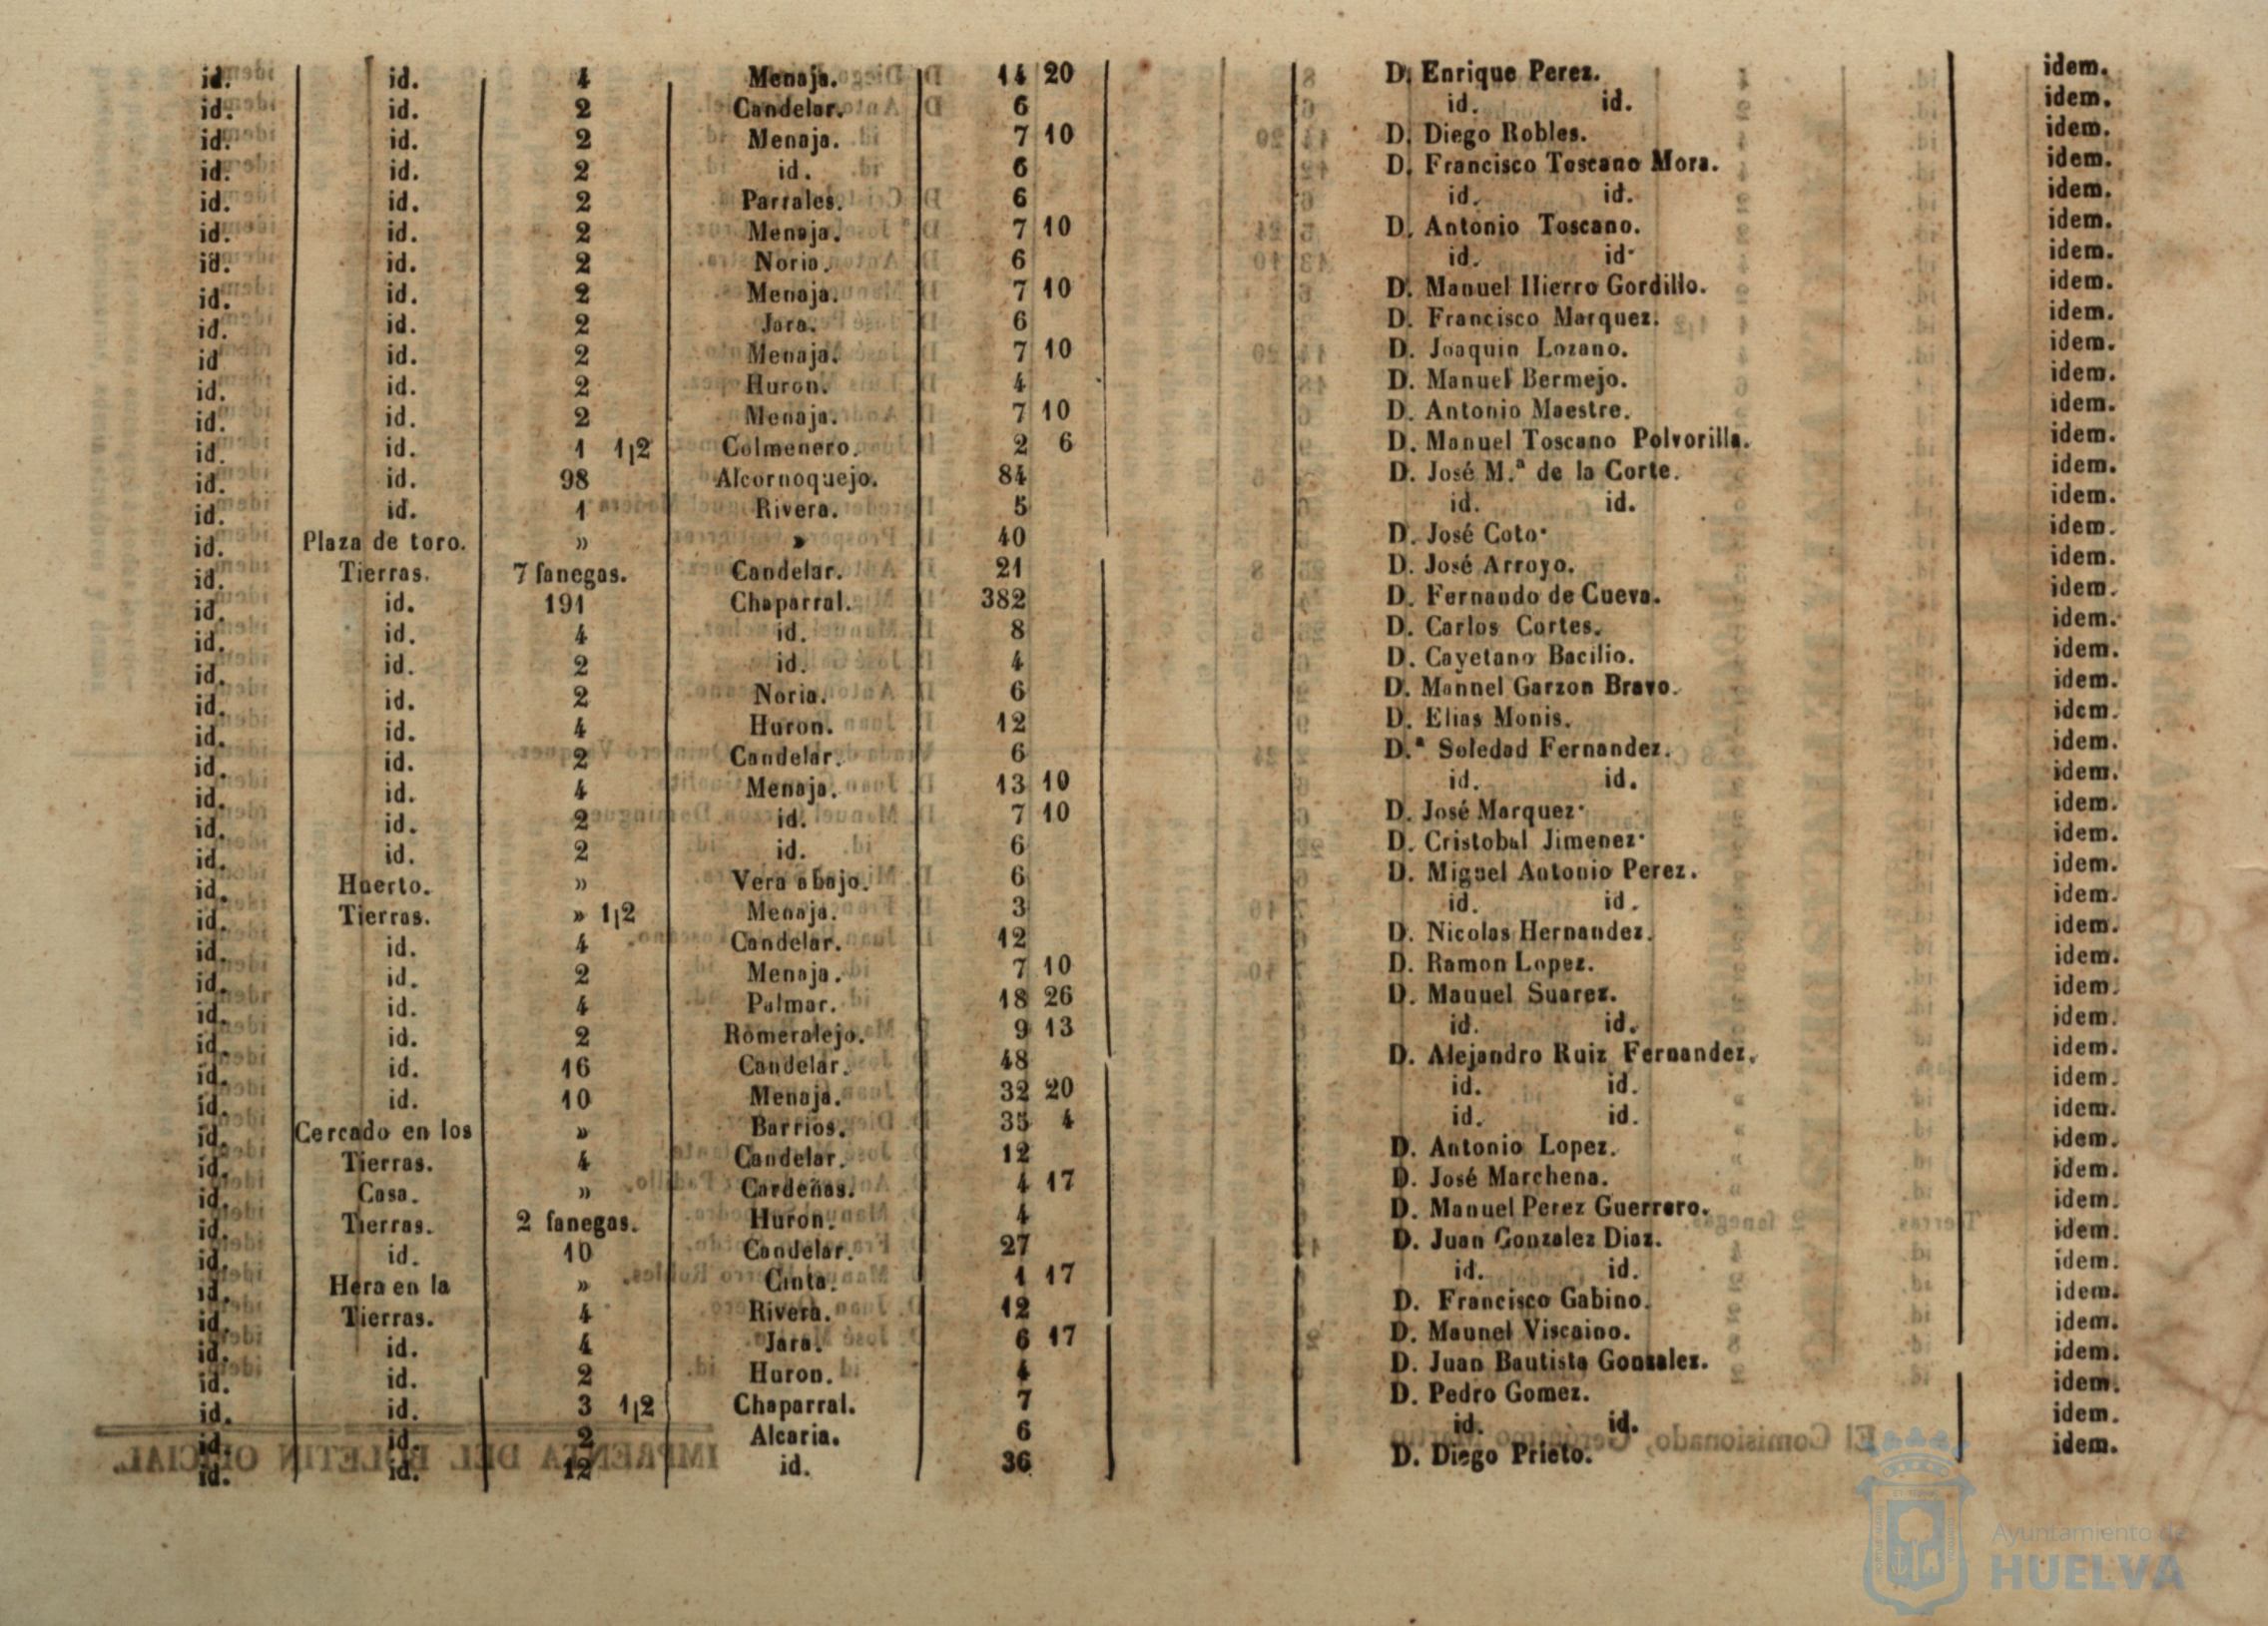 id. id. 4 Menaja. 14 20 D. Enrique Perez. idem.
id. id. 2 Candelar. 6 id. id. idem.
id. id. 2 Menaja. 7 10 D. Diego Robles. idem.
id. id. 2 id. 6 D. Francisco Toscano Mora. idem.
id. id. 2 Parrales. 6 id. id. idem.
id. id. 2 Menaja. 7 10 D. Antonio Toscano. idem.
id. id. 2 Noria. 6 id. id. idem.
id. id. 2 Menaja. 7 10 D. Manuel Hierro Gordillo. idem.
id. id. 2 Jara. 6 D. Francisco Marquez. idem.
id id. 2 Menaja. 7 10 D. Joaquin Lozano. idem.
id. id. 2 Huron. 4 D. Manuel Bermejo. idem.
id. id. 2 Menaja. 7 10 D. Antonio Maestre. idem.
id. id. 1 1|2 Colmenero. 2 6 D. Manuel Toscano Polvorilla. idem.
id. id. 98 Alcornoquejo. 84 D. José M.ª de la Corte. idem.
id. id. 1 Rivera. 5 id. id. idem.
id. Plaza de toro. » » 40 D. José Coto. idem.
id. Tierras. 7 fanegas. Candelar. 21 D. José Arroyo. idem.
id. id. 191 Chaparral. 382 D. Fernando de Cueva. idem.
id. id. 4 id. 8 D. Carlos Cortes. idem.
id. id. 2 id. 4 D. Cayetano Bacilio. idem.
id. id. 2 Noria. 6 D. Mannel Garzon Bravo. idem.
id. id. 4 Huron. 12 D. Elias Monis. idem.
id. id. 2 Candelar. 6 D.ª Soledad Fernandez. idem.
id. id. 4 Menaja. 13 10 id. id. idem.
id. id. 2 id. 7 10 D. José Marquez. idem.
id. id. 2 id. 6 D. Cristobal Jimenez. idem.
id. Huerto. » Vera abajo. 6 D. Miguel Antonio Perez. idem.
id. Tierras. » 1|2 Menaja. 3 id. id. idem.
id. id. 4 Candelar. 12 D. Nicolas Hernandez. idem.
id. id. 2 Menaja. 7 10 D. Ramon Lopez. idem.
id. id. 4 Palmar. 18 26 D. Manuel Suarez. idem.
id. id. 2 Romeralejo. 9 13 id. id. idem.
id. id. 16 Candelar. 48 D. Alejandro Ruiz Fernandez. idem.
id. id. 10 Menaja. 32 20 id. id. idem.
id. Cercado en los » Barrios. 35 4 id. id. idem.
id. Tierras. 4 Candelar. 12 D. Antonio Lopez. idem.
id. Casa. » Cardeñas. 4 17 D. José Marchena. idem.
id. Tierras. 2 fanegas. Huron. 4 D. Manuel Perez Guerrero. idem.
id. id. 10 Candelar. 27 D. Juan Gonzalez Diaz. idem.
id. Hera en la » Cinta. 1 17 id. id. idem.
id. Tierras. 4 Rivera. 12 D. Francisco Gabino. idem.
id. id. 4 Jara. 6 17 D. Maunel Viscaino. idem.
id. id. 2 Huron. 4 D. Juan Bautista Gonzalez. idem.
id. id. 3 1|2 Chaparral. 7 D. Pedro Gomez. idem.
id. id. 2 Alcaria. 6 id. id. idem.
id. id. 12 id. 36 D. Diego Prieto. idem.
Ayuntamiento de
HUELVA